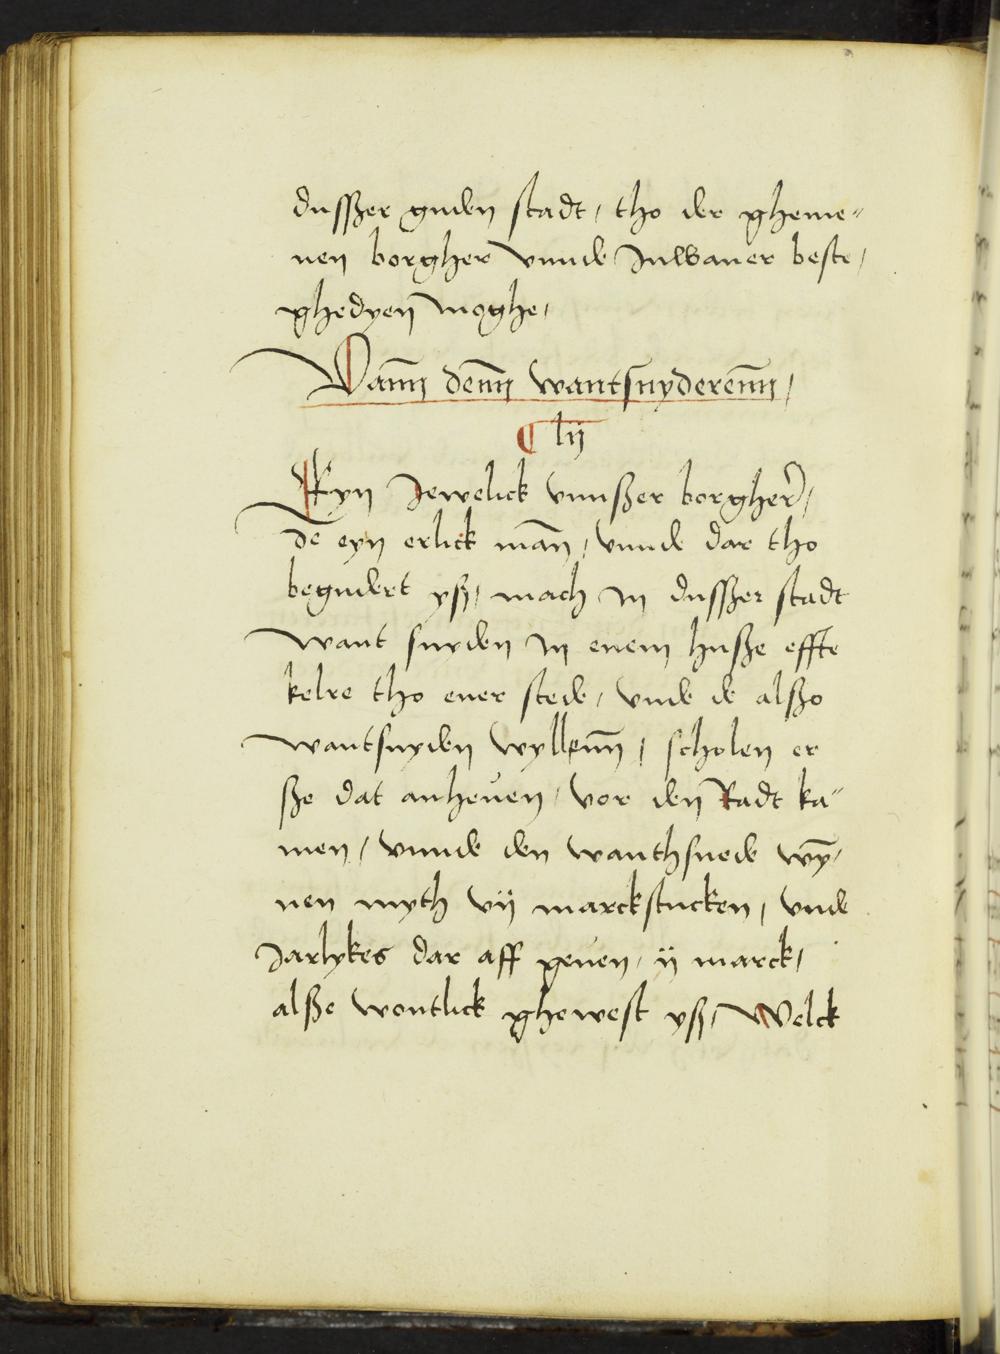 dussszer guden stadt, tho der gheme-
nen borgher vnnde Inwaner beste,
ghedyen moghe,
Vann̄ denn̄ wantsnyderenn̄,
¶ lij
Eyn Jewelick vnnszer borgher̄,
de eyn erlick man̄, vnnde dar tho
begudert ysz, mach in dusszer stadt
want snyden in enem husze effte
kelre tho ener stede, vnde de alszo
wantsnyden wyllenn̄, scholen er
sze dat anheuen, vor den Radt ka-
men, vnnde den wanthsnede wȳ-
nen myth vij marckstucken, vnde
Jarlykes dar aff geuen, ij marck,
alsze wontlick ghewest ysz, Welck